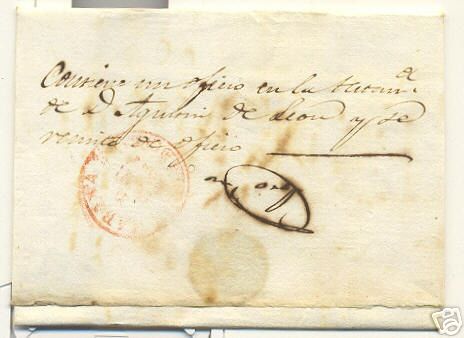 Contiene un oficio en la
de D. Agustin de Leon y se
remite de oficio